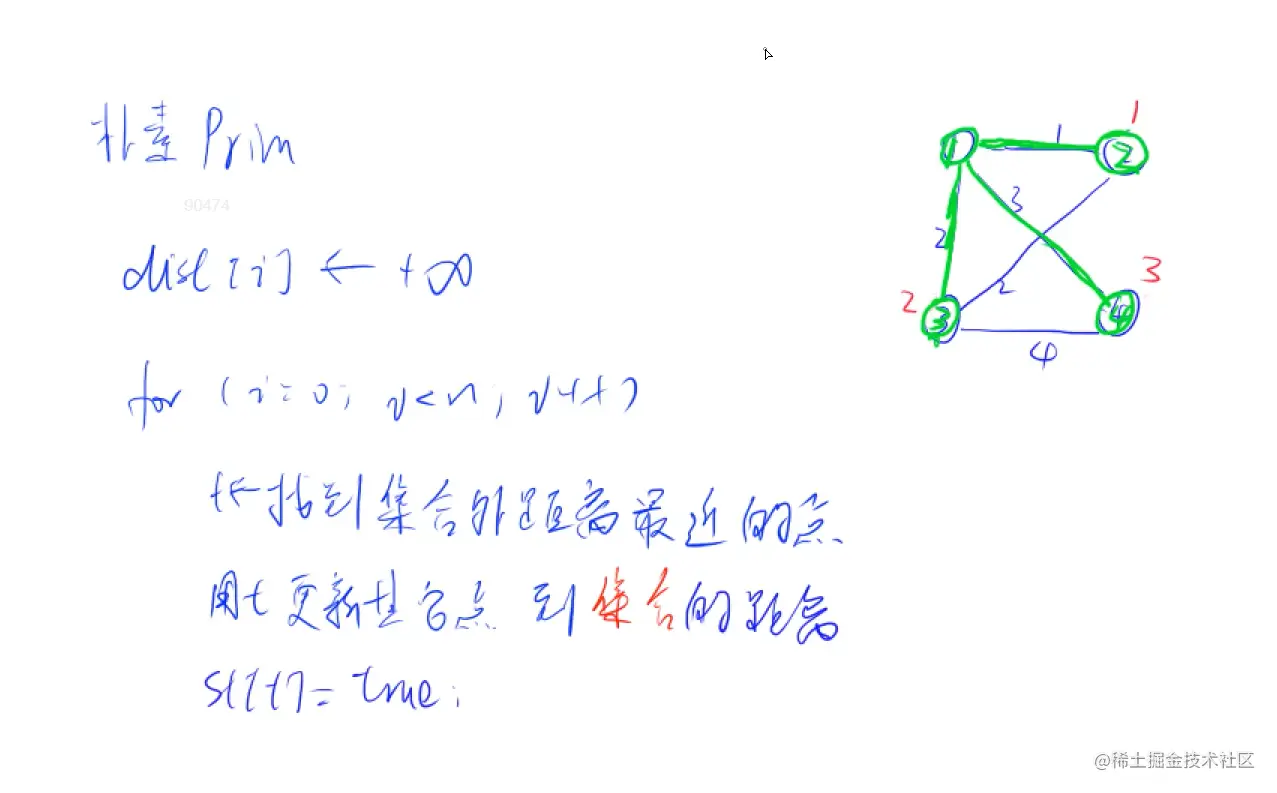 朴素 Prim
90474
dist[i] ← +∞
for (i=0; i<n; i++)
t←找到集合外距离最近的点
用t更新其它点 到集合的距离
st[t]=true;
1
1
2
1
3
2
2
3
2
3
4
4
@稀土掘金技术社区